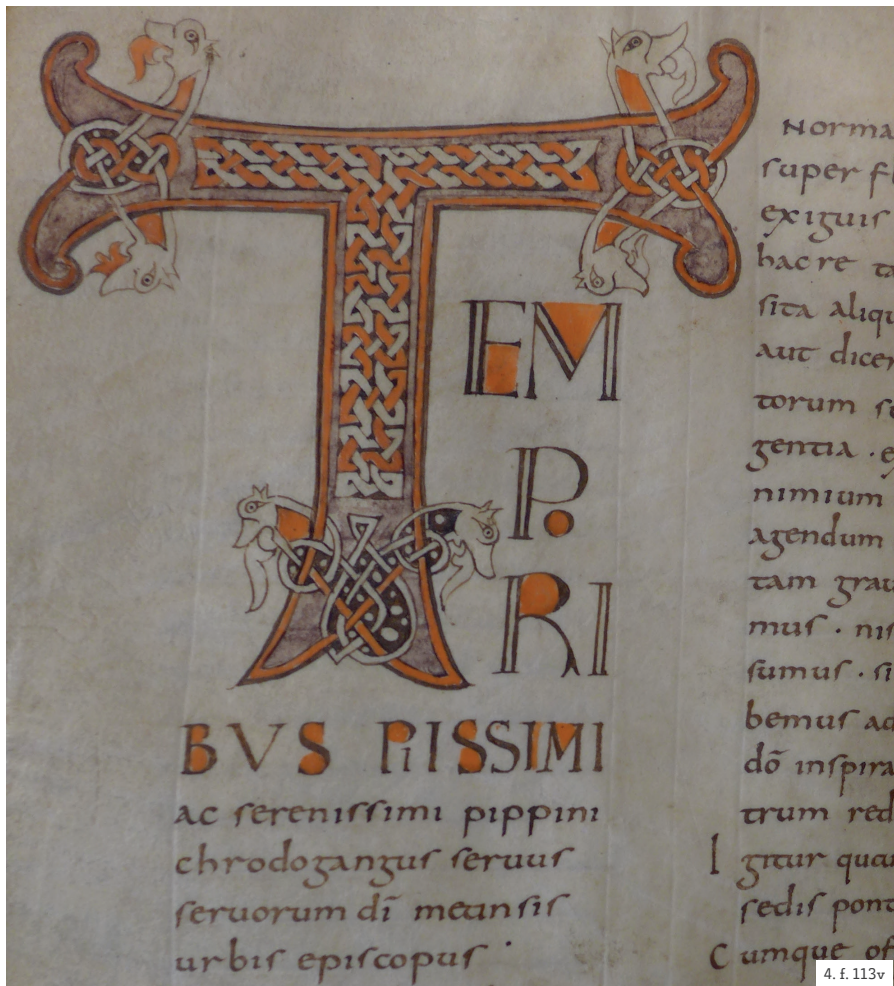 T
EM
PO
RI
BVS PiISSIMI
ac serenissimi pippini
chrodogangus seruus
seruorum dī metensis
urbis episcopus ·
Norma
super fl
exiguis
hac re ta
sita aliqu
aut dicer
torum se
gentia · e
nimium
agendum
tam grau
mus · nis
sumus · si
bemus ad
dō inspira
trum red
I gitur
sedis pont
C umque of
4. f. 113v